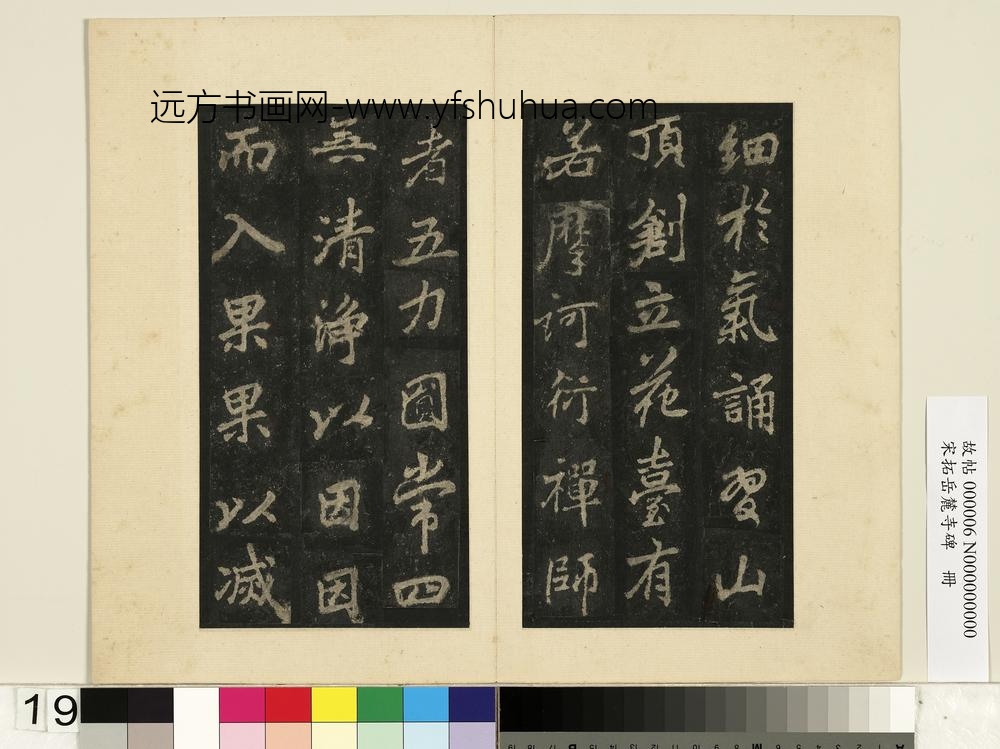 远方书画网-www.yfshuhua.com
細於氣誦習山
頂創立花臺有
若摩訶衍禪師
者五力圓常四
無清淨以因因
而入果果以滅
故帖 000006 N000000000
宋拓岳麓寺碑 冊
19